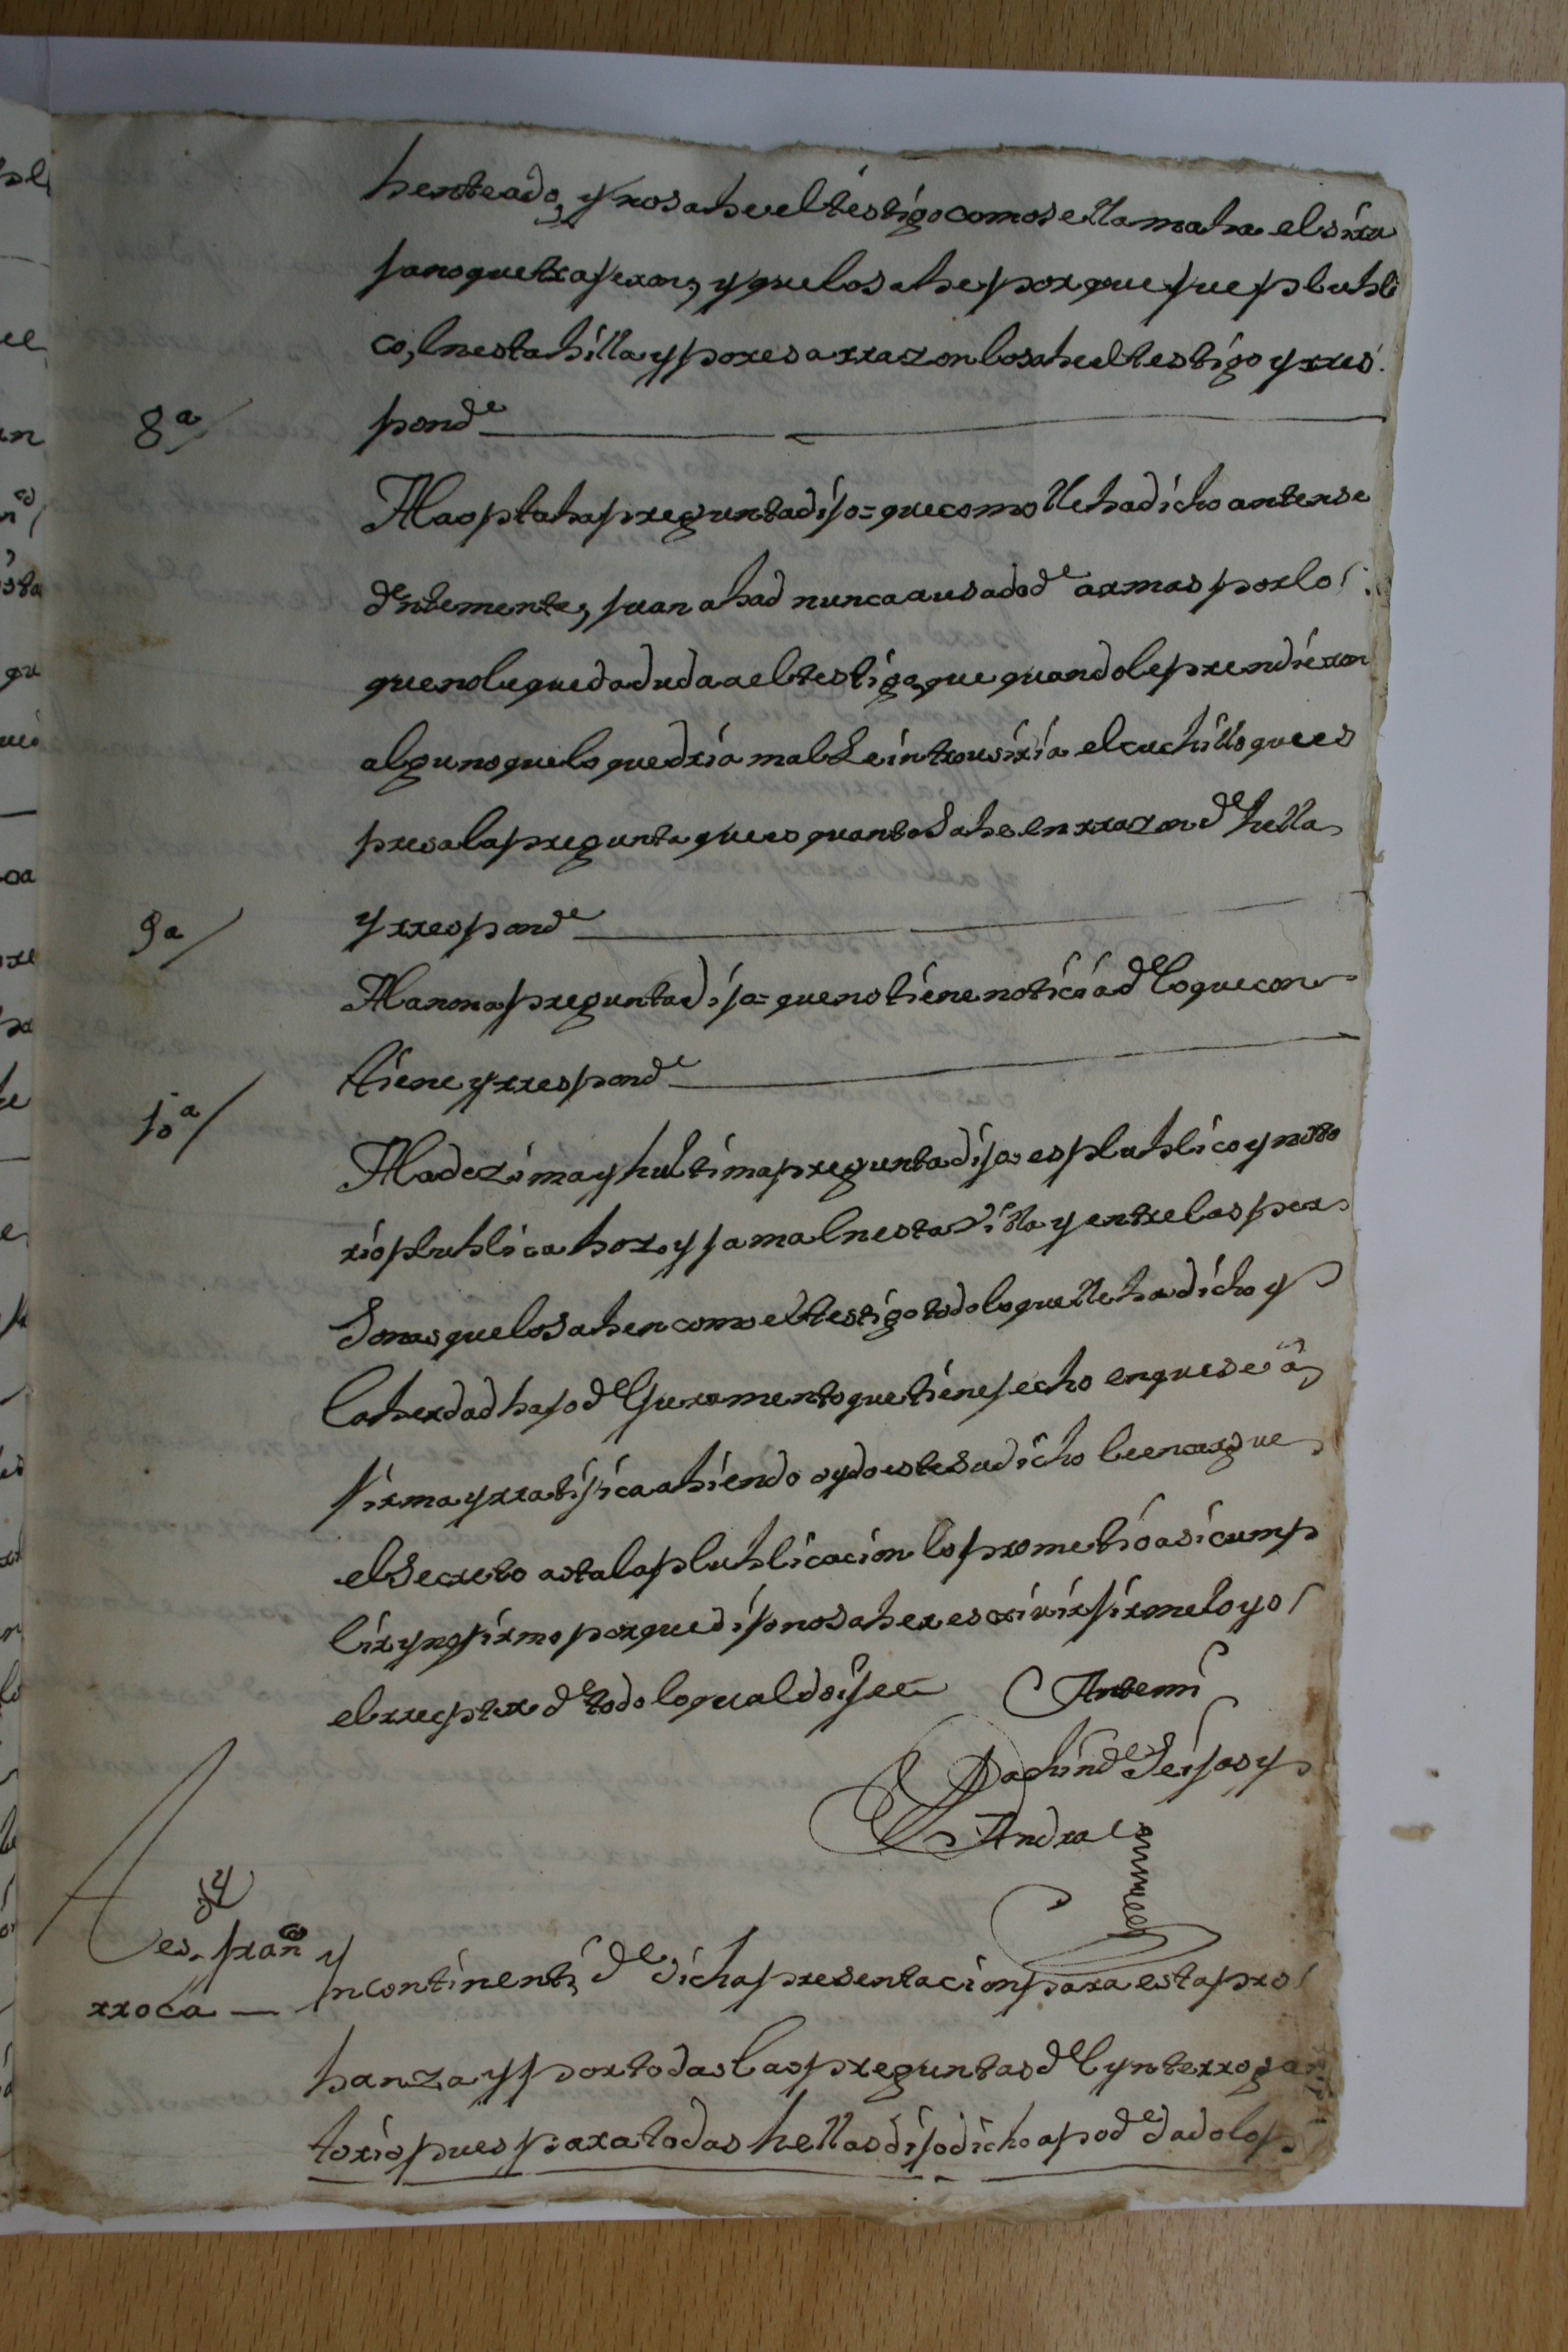 benteado, y no sabe el testigo como se llamaba el ziru
jano que trajeron, y que lo sabe porque fue publi
co, en esta billa y por esa rrazon lo sabe el testigo y rres
ponde
8ª/
A la optaba pregunta dijo = que como lleba dicho antense
dentemente, juan abad nunca a usado de armas por lo
que no le queda duda a el testigo, que quando le prendieron
alguno que lo quedria mal le introusiria el cuchillo que es
presa la pregunta que es quanto sabe en rrazon de hella
9ª/
y rresponde
A la nona pregunta dijo = que no tiene noticia de lo que con
tiene y rresponde
10ª/
A la dezima y hultima pregunta dijo es publico y noto
rio publica boz y fama en esta Villa y entre las per
sonas que lo saben como el testigo todo lo que lleba dicho y
la berdad bajo del juramento que tiene fecho en que se a
firma y rratifica abiendo oydo este su dicho le encargue
el secreto asta la publicacion lo prometio asi cump
lir y no firmo porque dijo no saber escrivir firmelo yo
el rreceptor de todo lo qual doi fee Antemi
de Seijas y
Andra
tes. fran co
rroca
Yncontinenti, de dicha presentacion para esta pro
banza y por todas las preguntas del ynterroga
torio pues para todas hellas dijo dicho apode dado lo p